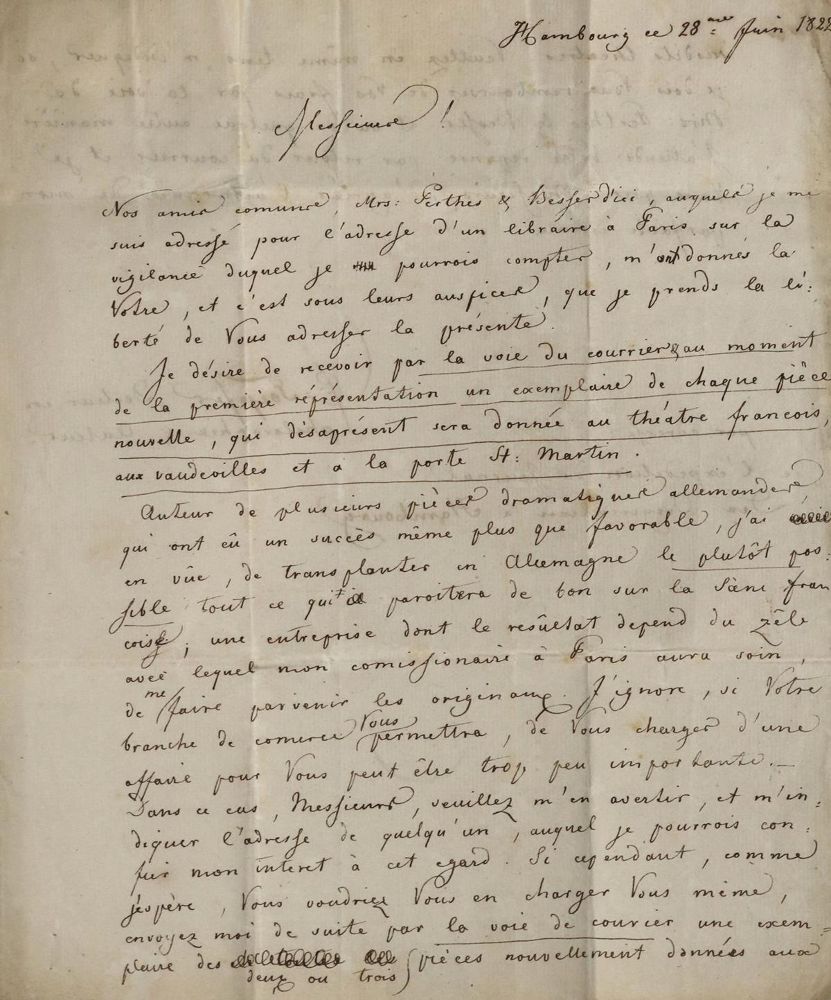 Hambourg ce 28 me Juin 1822
Messieurs!
Nos amis comuns, Mrs: Perthes & Besser d'ici, auquels je me
suis adressé pour l'adresse d'un libraire à Paris sur la
vigilance duquel je pourrois compter, m'ont donnés la
Votre, et c'est sous leurs auspices, que je prends la li:
berté de Vous adresser la présente.
Je désire de recevoir par la voie du courrier & au moment
de la première répréséntation un exemplaire de chaque pièce
nouvelle, qui désaprésent sera donnée au théatre francois,
aux vaudevilles et a la porte St: Martin.
Auteur de plusieurs pièces dramatiques allemandes,
qui ont eû un succès même plus que favorable, j'ai
en vûe, de transplanter en Allemagne le plutôt pos:
sible tout ce qui paroitera de bon sur la Scène fran
coise, une entreprise dont le resûltat depend du zêle
avec lequel mon comissionaire à Paris aura soin,
de me faire parvenir les originaux. J'ignore, si Votre
branche de comerce Vous permettra, de Vous charger d'une
affaire pour Vous peut être trop peu importante. —
Dans ce cas, Messieurs, veuillez m'en avertir, et m'in-
diquer l'adresse de quelqu'un, auquel je pourrois con:
fier mon interet à cet egard. Si cependant, comme
j'espère, Vous voudriez Vous en charger Vous même,
envoyez moi de suite par la voie de courier une exem-
plaire des pièces nouvellement données aux
deux ou trois